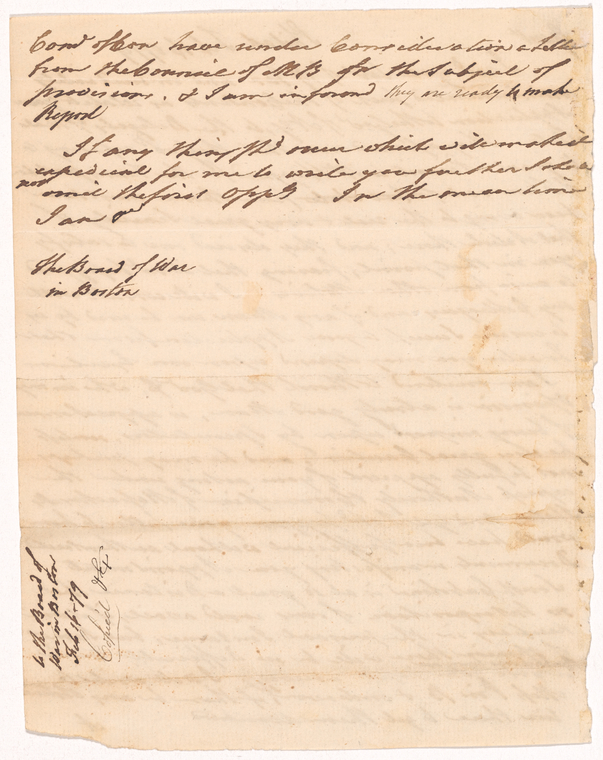 Com.e of Con have under Consideration a letter
from the Council of M B on the Subject of
provisions. & I am informd they are ready to make
Report
If any thing sh.d occur which will make it
expedient for me to write you further I shall
not omit the first Opp.y In the mean time
I am &c
The Board of War
in Boston
to the Board of
War in Boston
Feb 16-79
Copied